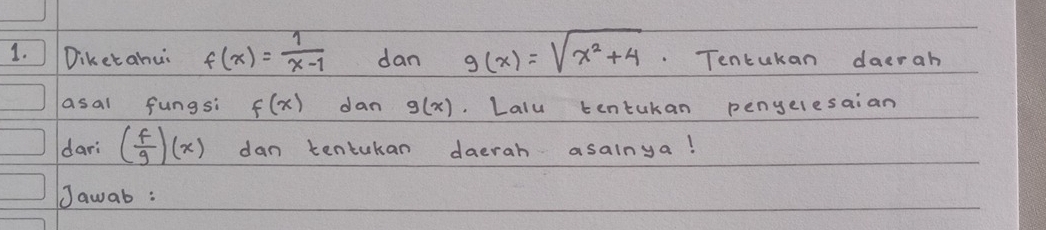 1. Diketahui f(x) = 1/(x-1) dan g(x) = √(x²+4) . Tentukan daerah
asal fungsi f(x) dan g(x). Lalu tentukan penyelesaian
dari (f/g)(x) dan tentukan daerah asalnya !
Jawab :